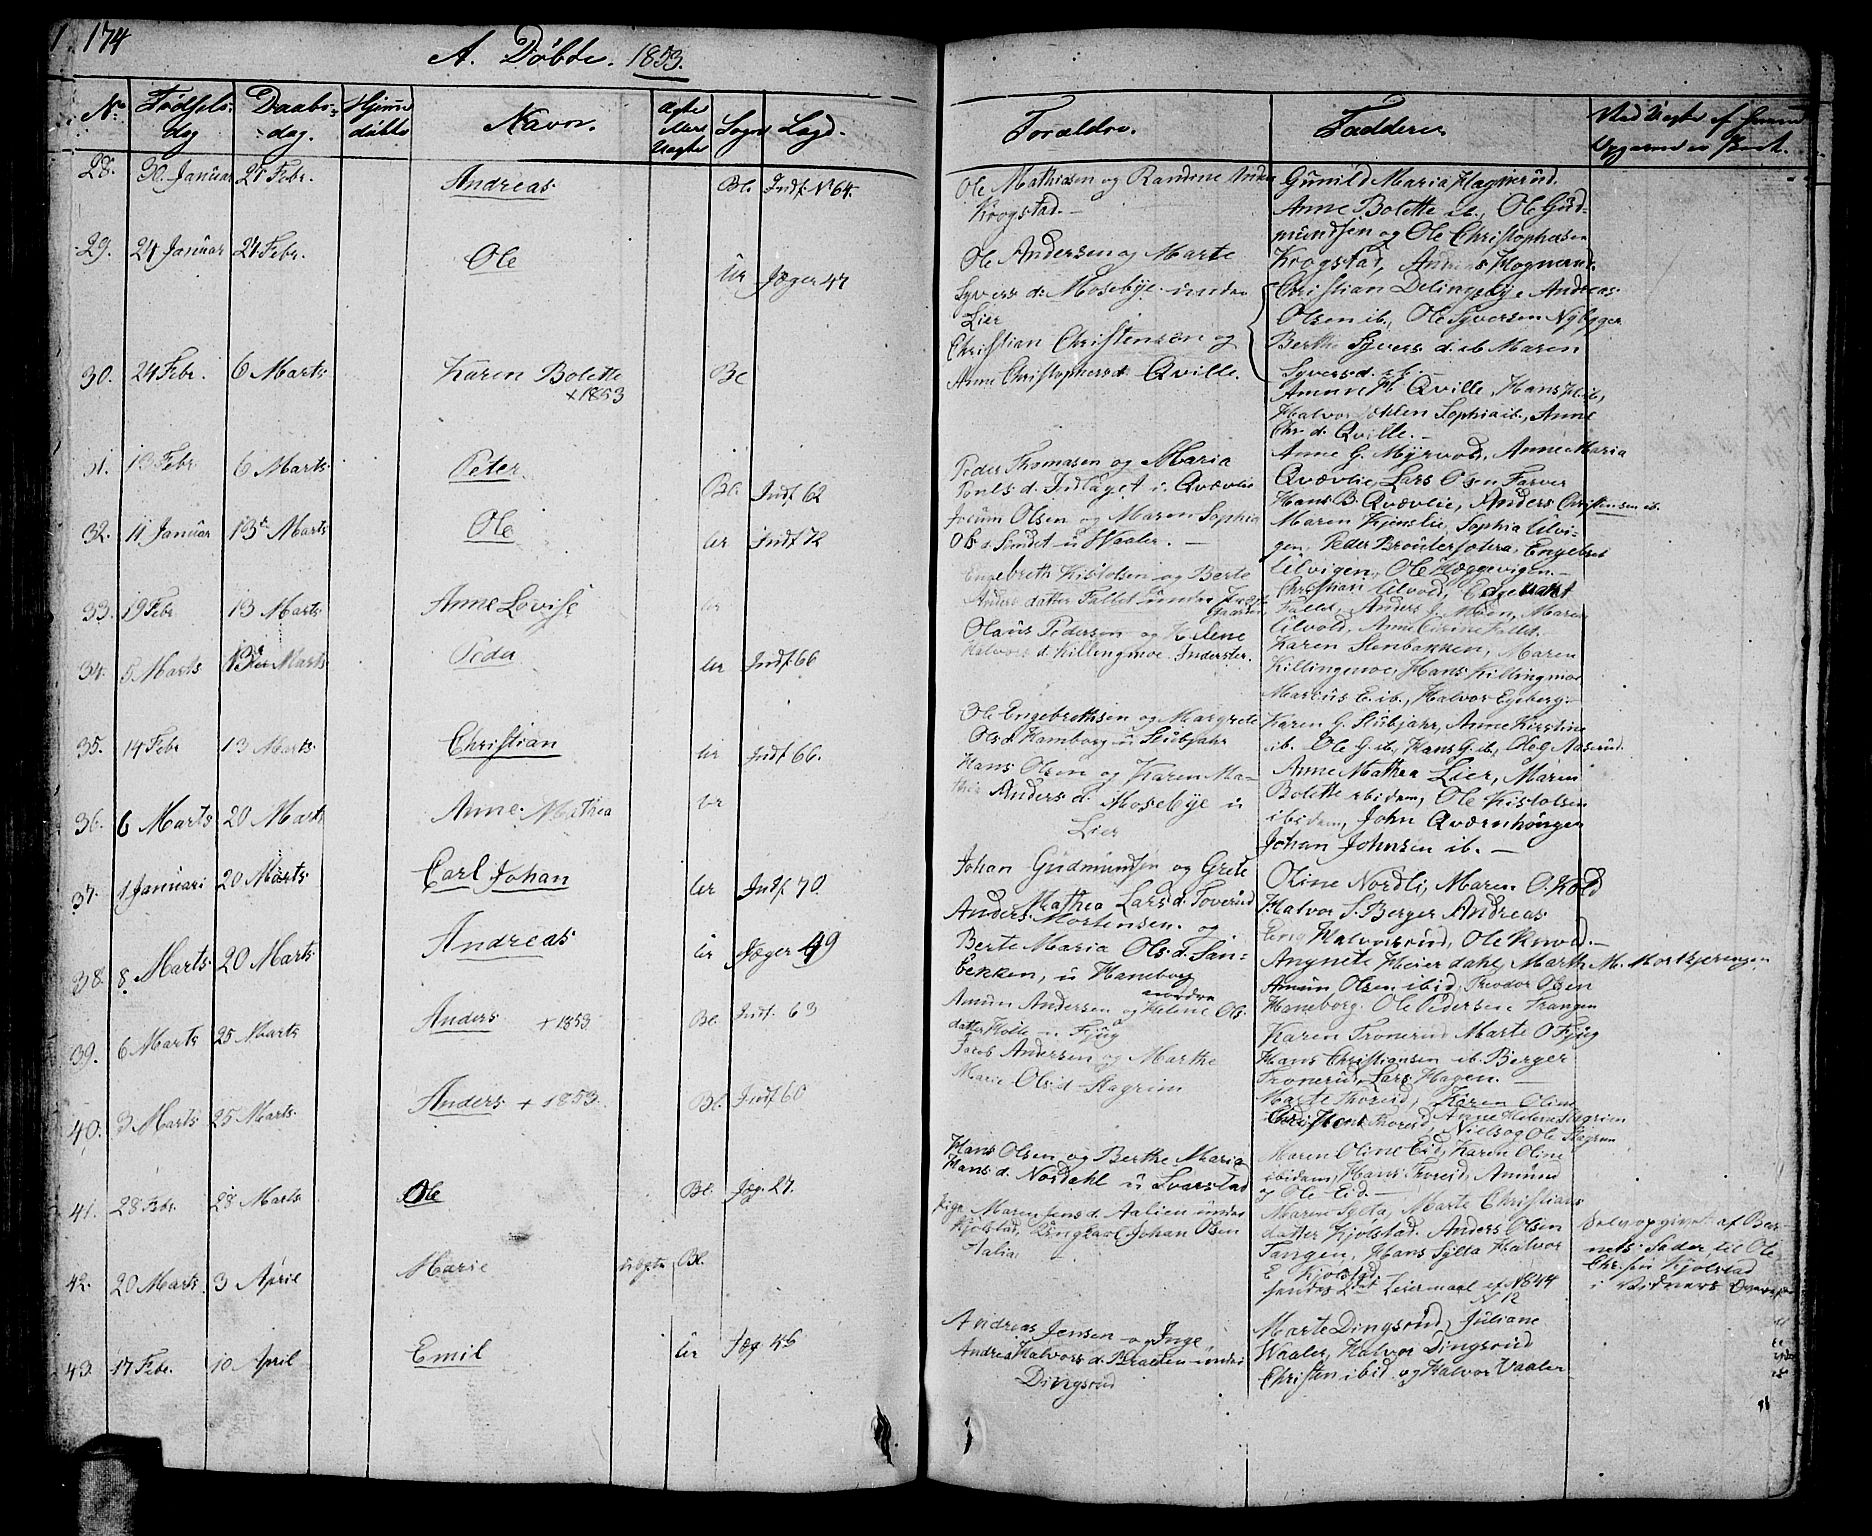 174
A. Döbte. 1853.
No Födsels dag Daabs dag. Hjemme döbte Navn. Ægte Uægte Sogn Lægd. Forældre. Faddere
28. 30. Januar 27 Febr. Andreas Bl. Indf. N 64. Ole Mathiasen og Randine
Krogstad.
Gunild Maria
Anne Bolette ib., Ole Gud-
mundsen og Ole Christophersen
Krogstad, Andreas
29. 24 Januar 27 Febr. Ole Ur Jæger 47 Ole Andersen og Marte
Syvers d. Mosebye under
Lier
Christian Delingsbye Andreas
Olsen ib., Ole Syversen Nybyger
Berthe Syvers d. ib Maren
Syversd. ib.
30. 24 Febr. 6 Marts Karen Bolette Bl
+1853
Christian Christensen og
Anne Christophersd. Qville.
Qville, Hans H. ib,
Halvor Sophia ib., Anne
Chr. d. Qville.
31. 13 Febr. 6 Marts Peter Bl. Indf 62 Peder Thomasen og Maria
Pouls d. Indlaget i Qvævlie
Anne G. Myrvold, Anne Maria
Qvævlie, Lars Olsen Farver
Hans B. Qvævlie, Anders Christensen ib.
32. 11 Januar 13 Marts Ole Ur Indf 72 Jocum Olsen og Maren Sophia
Ols d. Sundet u Waaler.
Maren Kjønslie, Sophia Ulvi-
gen, Peder Engebret
Ulvigen, Ole Hæggevigen.
33. 19 Febr 13 Marts Anne Lovise Ur Engebreth Kistolsen og Berte
Anders datter Fallet under
Christian Ulvold, Engebret
Fallet, Anders G. Moen, Maren
Ulvold, Anne Cirine Fallet.
34. 5 Marts 13 Marts Peder Ur Indf. 66 Olaus Pedersen og Helene
Halvors d. Killingmoe Inderster.
Karen Stenbakken, Maren
Killingmoe, Hans Killingmoe
Marius E. ib., Halvor Egeberg.
35. 14 Febr 13 Marts. Christian Ur Indf 66. Ole Engebrethsen og Margrete
Ols d. Hamborg u Stubjahr
Karen G. Stubjahr, Anne Kirstine
ib. Ole G. ib, Hans G. ib, Ole G Aaserud.
36. 6 Marts 20 Marts Anne Mathea Ur Hans Olsen og Karen Ma-
thea Anders d. Mosebye u
Lier
Anne Mathea Lier, Maren
Bolette ibidem, Ole Kistolsen
ibidem, John Qværnhöngen
Johan Johnsen ib.
37. 1 Januari 20 Marts Carl Johan Ur Indf 70. Johan Gudmundsen og Grete
Mathea Lars d. Toverud
Oline Nordli, Maren O. Kold
Halvor S. Berger Andreas
Halvorsrud, Ole
38. 8 Marts. 20 Marts Andreas Ur Jæger 49 Anders Mortensen og
Berte Maria Ols. d. San-
bekken, u Haneborg
nordre
Angnete Heierdahl, Marth M. Morkjeringen
Amun Olsen ibid, Theodor Olsen
Haneborg. Ole Pedersen Trangen
39. 6 Marts 25 Marts Anders + 1853 Bl. Indf. 63 Amun Andersen og Helene Ols
datter Holle u Fjug
Karen Tronerud Marte O Fjug
Hans Christiansen ib. Berger
Tronerud, Lars Hagen.
40. 3 Marts 25 Marts. Anders + 1853. Bl. Indf 60 Jacob Andersen og Marthe
Marie Ols. d. Stagrim
Marte Thoreid, Karen Oline
Christian Thoreid, Anne Helene Stagrim
Niels og Ole Stagrim
41. 28 Febr. 28 Marts Ole Bl. Jæg. 27. Hans Olsen og Berthe Maria
Hans d. Nordahl u Svarstad
Maren Oline Eid, Karen Oline
ibidem, Hans Thoreid, Amund
og Ole Eid.
42. 20 Marts. 3 April Marie Uægte Bl. Pige Maren Jens d. Aalien under
Kjolstad, Ungkarl Johan Olsen
Aalia.
Maren Sylta, Marte Christians
datter Kjolstad. Anders Olsen
Tangen, Hans Sylta Halvor
E Kjolstad
Leiermaal af N 844
N 12
Barnets Fader til Ole
Chr. sen Kjolstad
i Vidners
43. 17 Febr. 10 April Emil Ur Jæg 46 Andreas Jensen og Inge
Andrea Halvors d. Braaten under
Dingsrud
Marte Dingsrud, Juliane
Waaler, Halvor Dingsrud
Christen ibid. og Halvor Vaaler